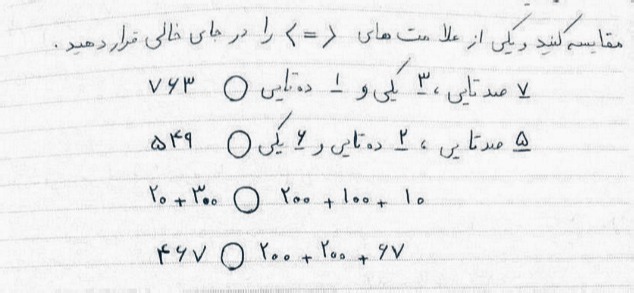 مقایسه کنید و یکی از علامت های <=> را در جای خالی قرار دهید.
۷ صدتایی، ۳ یکی و ۱ ده تایی ○ ۷۶۳
۵ صدتایی، ۲ ده تایی و ۶ یکی ○ ۵۴۹
۲۰ + ۳۰۰ ○ ۲۰۰ + ۱۰۰ + ۱۰
۴۶۷ ○ ۲۰۰ + ۲۰۰ + ۶۷